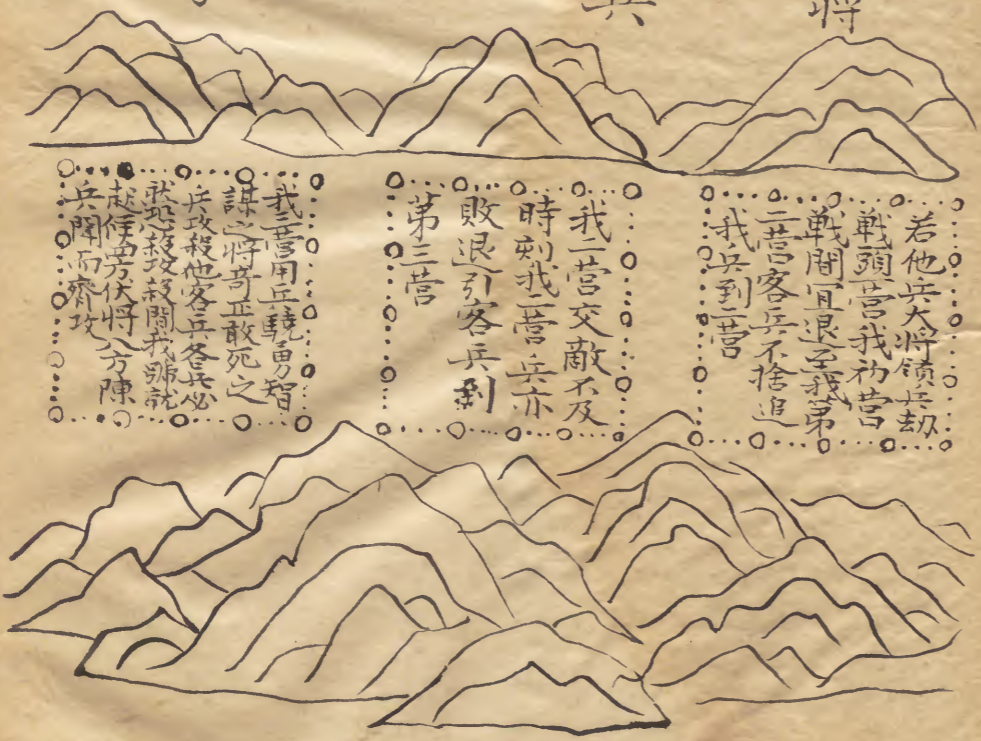 將
兵
若他兵大將領兵劫
戦頭營我初營
戦間冝退至我第
二營客兵不捨追
我兵到二營
我二營交敵不及
時刻我二營兵亦
敗退引客兵到
第三營
我三營用兵驍勇智
謀之將奇正敢死之
兵攻殺他客兵各兵必
殺攻殺間我號
起 旁伏將八方陳
兵 而齊攻